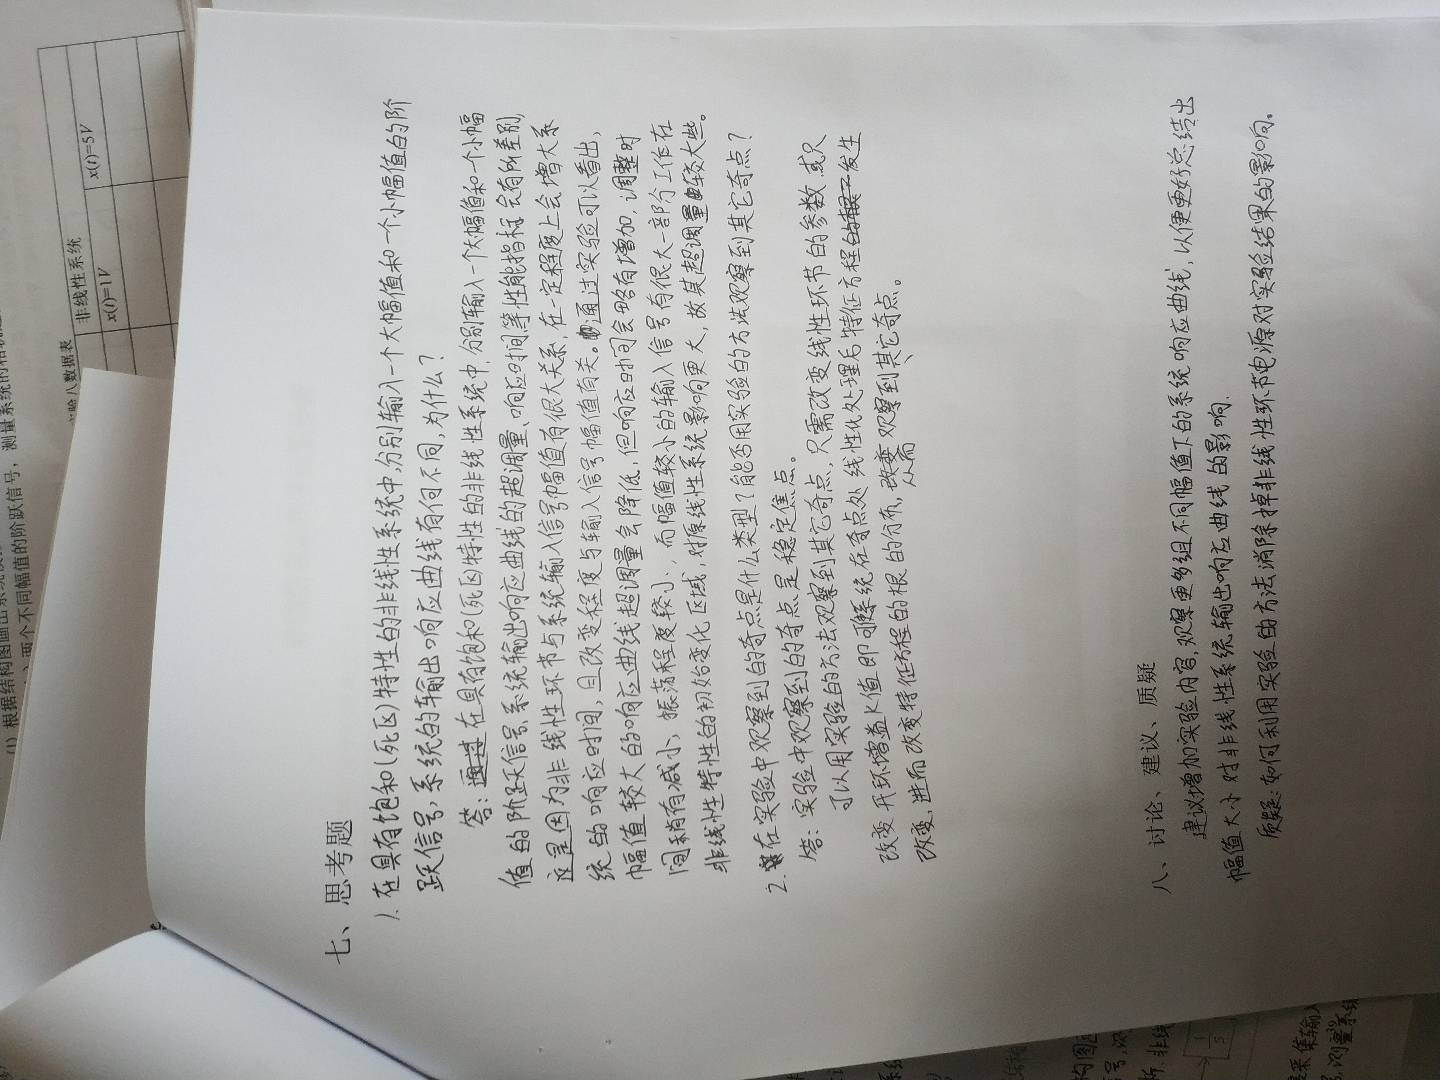 (1) 根据结构图画出系统模
两个不同幅值的阶跃信号，测量系统的相轨迹
实验八数据表
非线性系统
x(t)=1V
x(t)=5V
七、思考题
1. 在具有饱和(死区)特性的非线性系统中,分别输入一个大幅值和一个小幅值的阶
跃信号,系统的输出响应曲线有何不同,为什么?
答: 通过 在具有饱和(死区)特性的非线性系统中,分别输入一个大幅值和一个小幅
值的阶跃信号,系统输出响应曲线的超调量、响应时间等性能指标会有所差别,
这是因为非线性环节与系统输入信号幅值有很大关系,在一定程度上会增大系
统的响应时间,且改变程度与输入信号幅值有关。通过实验可以看出,
幅值较大的响应曲线超调量会降低,但响应时间会略有增加,调整时
间稍有减小,振荡程度较小,而幅值较小的输入信号有很大一部分工作在
非线性特性的初始变化区域,对原线性系统影响更大,故其超调量较大些。
2. 在实验中观察到的奇点是什么类型?能否用实验的方法观察到其它奇点?
答: 实验中观察到的奇点是稳定焦点。
可以用实验的方法观察到其它奇点,只需改变线性环节的参数.或只
改变开环增益K值即可使系统在奇点处线性化处理后特征方程的根发生
改变,进而改变特征方程的根的分布,改变观察到其它奇点。
从而
八、讨论、建议、质疑
建议增加实验内容,观察更多组不同幅值下的系统响应曲线,以便更好总结出
幅值大小对非线性系统输出响应曲线的影响.
质疑:如何利用实验的方法消除掉非线性环节电源对实验结果的影响。
构图画
号,测
析.非线
1/5
采集输入
号,测量系统